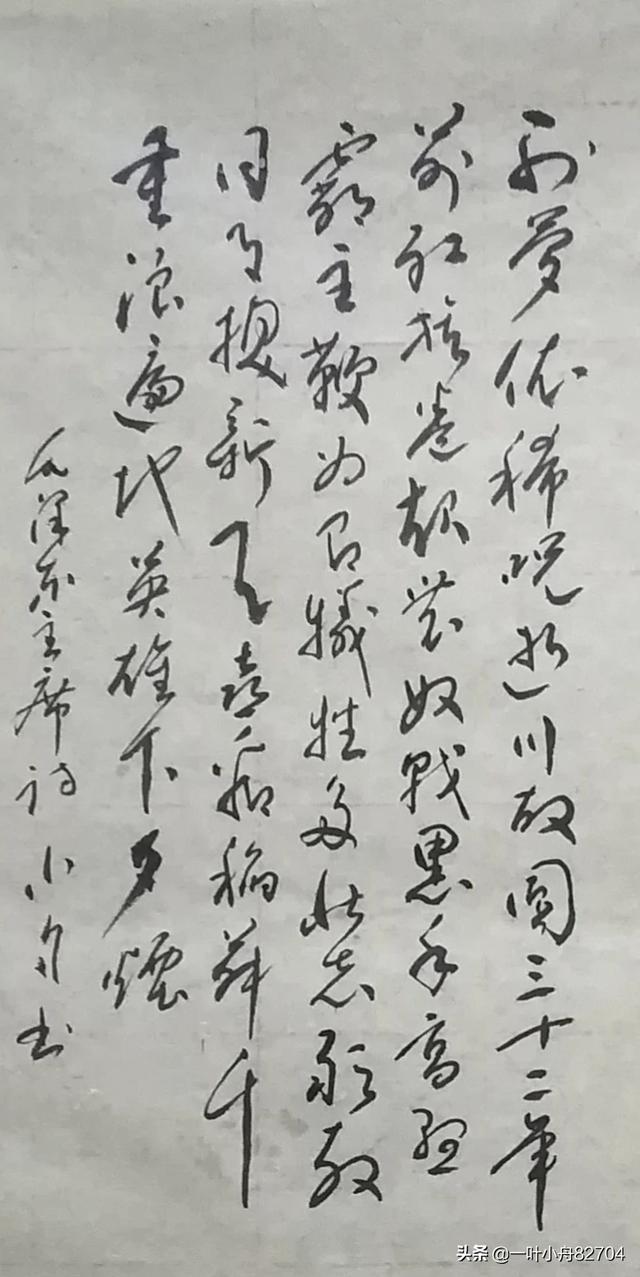 别梦依稀咒逝川故園三十二年
前红旗卷起農奴戟黑手高悬
霸主鞭为有犧牲多壮志敢教
日月換新天喜看稻菽千
重浪遍地英雄下夕煙
毛泽东主席诗 小舟书
头条 @一叶小舟82704